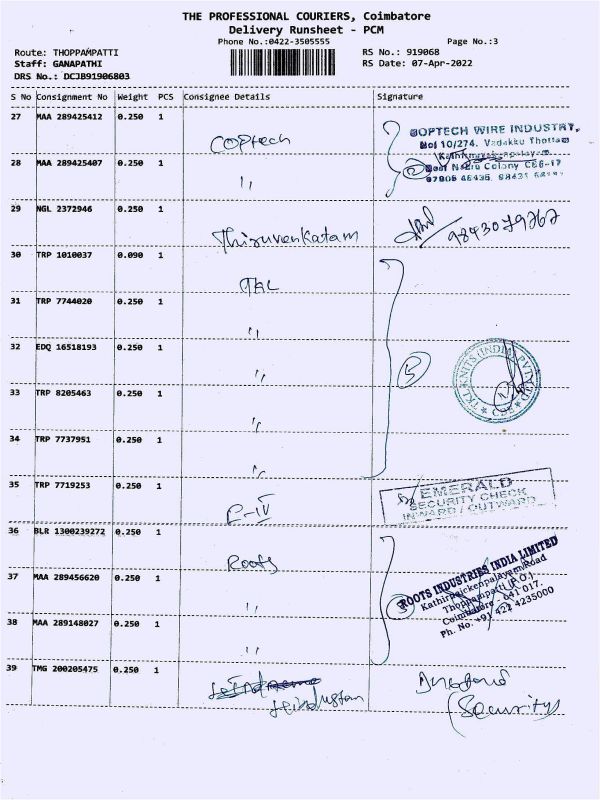 THE PROFESSIONAL COURIERS, Coimbatore
Delivery Runsheet - PCM
Phone No.:0422-3505555 Page No.:3
Route: THOPPAMPATTI RS No.: 919068
Staff: GANAPATHI RS Date: 07-Apr-2022
DRS No.: DCJB91906803
S No Consignment No Weight PCS Consignee Details Signature
27 MAA 289425412 0.250 1 COPtech
COPTECH WIRE INDUSTRY,
No: 10/274, Vadakku Thottam
Colony CBE-17
28 MAA 289425407 0.250 1 ,,
29 NGL 2372946 0.250 1 Thiruvenkatam 9843079767
30 TRP 1010037 0.090 1
31 TRP 7744020 0.250 1 ,,
32 EDQ 16518193 0.250 1 ,,
5
TKL KNITS (INDIA) PVT LTD
33 TRP 8205463 0.250 1 ,,
34 TRP 7737951 0.250 1 ,,
35 TRP 7719253 0.250 1 E-IV
EMERALD
SECURITY CHECK
INWARD / OUTWARD
36 BLR 1300239272 0.250 1 Roots
ROOTS INDUSTRIES INDIA LIMITED
Kathirnaickenpalayam Road
Thoppampatti (P.O.)
Coimbatore - 641 017.
Ph. No. +91 422 4235000
37 MAA 289456620 0.250 1 ,,
38 MAA 289148027 0.250 1 ,,
39 TMG 200205475 0.250 1
Hindustan (Security)